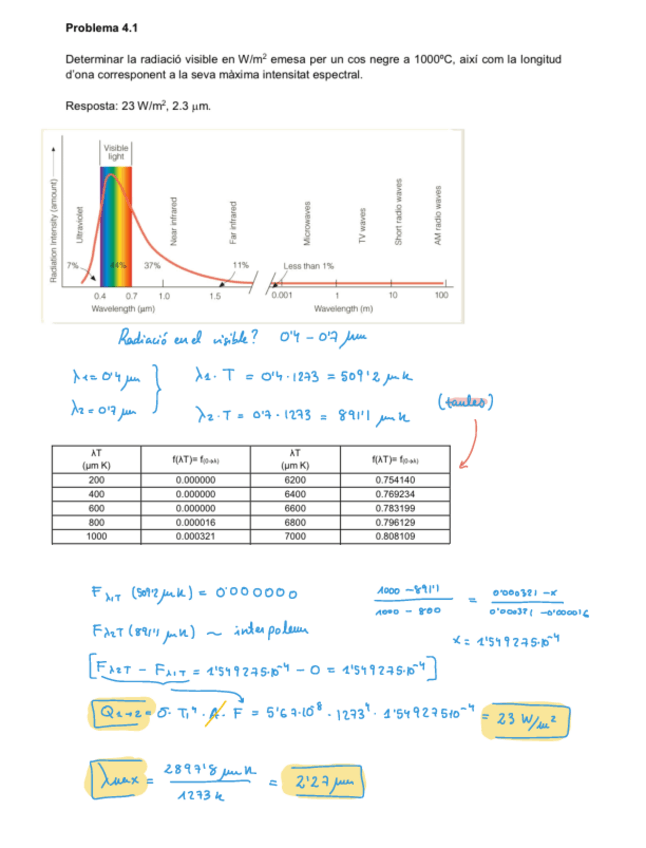 Problema 4.1
Determinar la radiació visible en W/m² emesa per un cos negre a 1000ºC, així com la longitud
d'ona corresponent a la seva màxima intensitat espectral.
Resposta: 23 W/m², 2.3 µm.
Visible
light
Radiation Intensity (amount)
Ultraviolet
Near infrared
Far infrared
Microwaves
TV waves
Short radio waves
AM radio waves
7% 44% 37% 11% Less than 1%
0.4 0.7 1.0 1.5 0.001 1 10 100
Wavelength (µm) Wavelength (m)
Radiació en el visible? 0'4 - 0'7 µm
λ1 = 0'4 µm λ1 · T = 0'4 · 1273 = 509'2 µm K
λ2 = 0'7 µm λ2 · T = 0'7 · 1273 = 891'1 µm K
(taules)
λT f(λT)= f(0→λ) λT f(λT)= f(0→λ)
(µm K) (µm K)
200 0.000000 6200 0.754140
400 0.000000 6400 0.769234
600 0.000000 6600 0.783199
800 0.000016 6800 0.796129
1000 0.000321 7000 0.808109
Fλ1T (509'2 µm K) = 0'000000
1000 - 891'1 / 1000 - 800 = 0'000321 - x / 0'000321 - 0'000016
Fλ2T (891'1 µm K) ~ interpolem
x = 1'549275·10⁻⁴
[Fλ2T - Fλ1T = 1'549275·10⁻⁴ - 0 = 1'549275·10⁻⁴]
Q1→2 = σ · T1⁴ · A · F = 5'67·10⁸ · 1273⁴ · 1'549275·10⁻⁴ = 23 W/m²
λmax = 2897'8 µm K / 1273 K = 2'27 µm